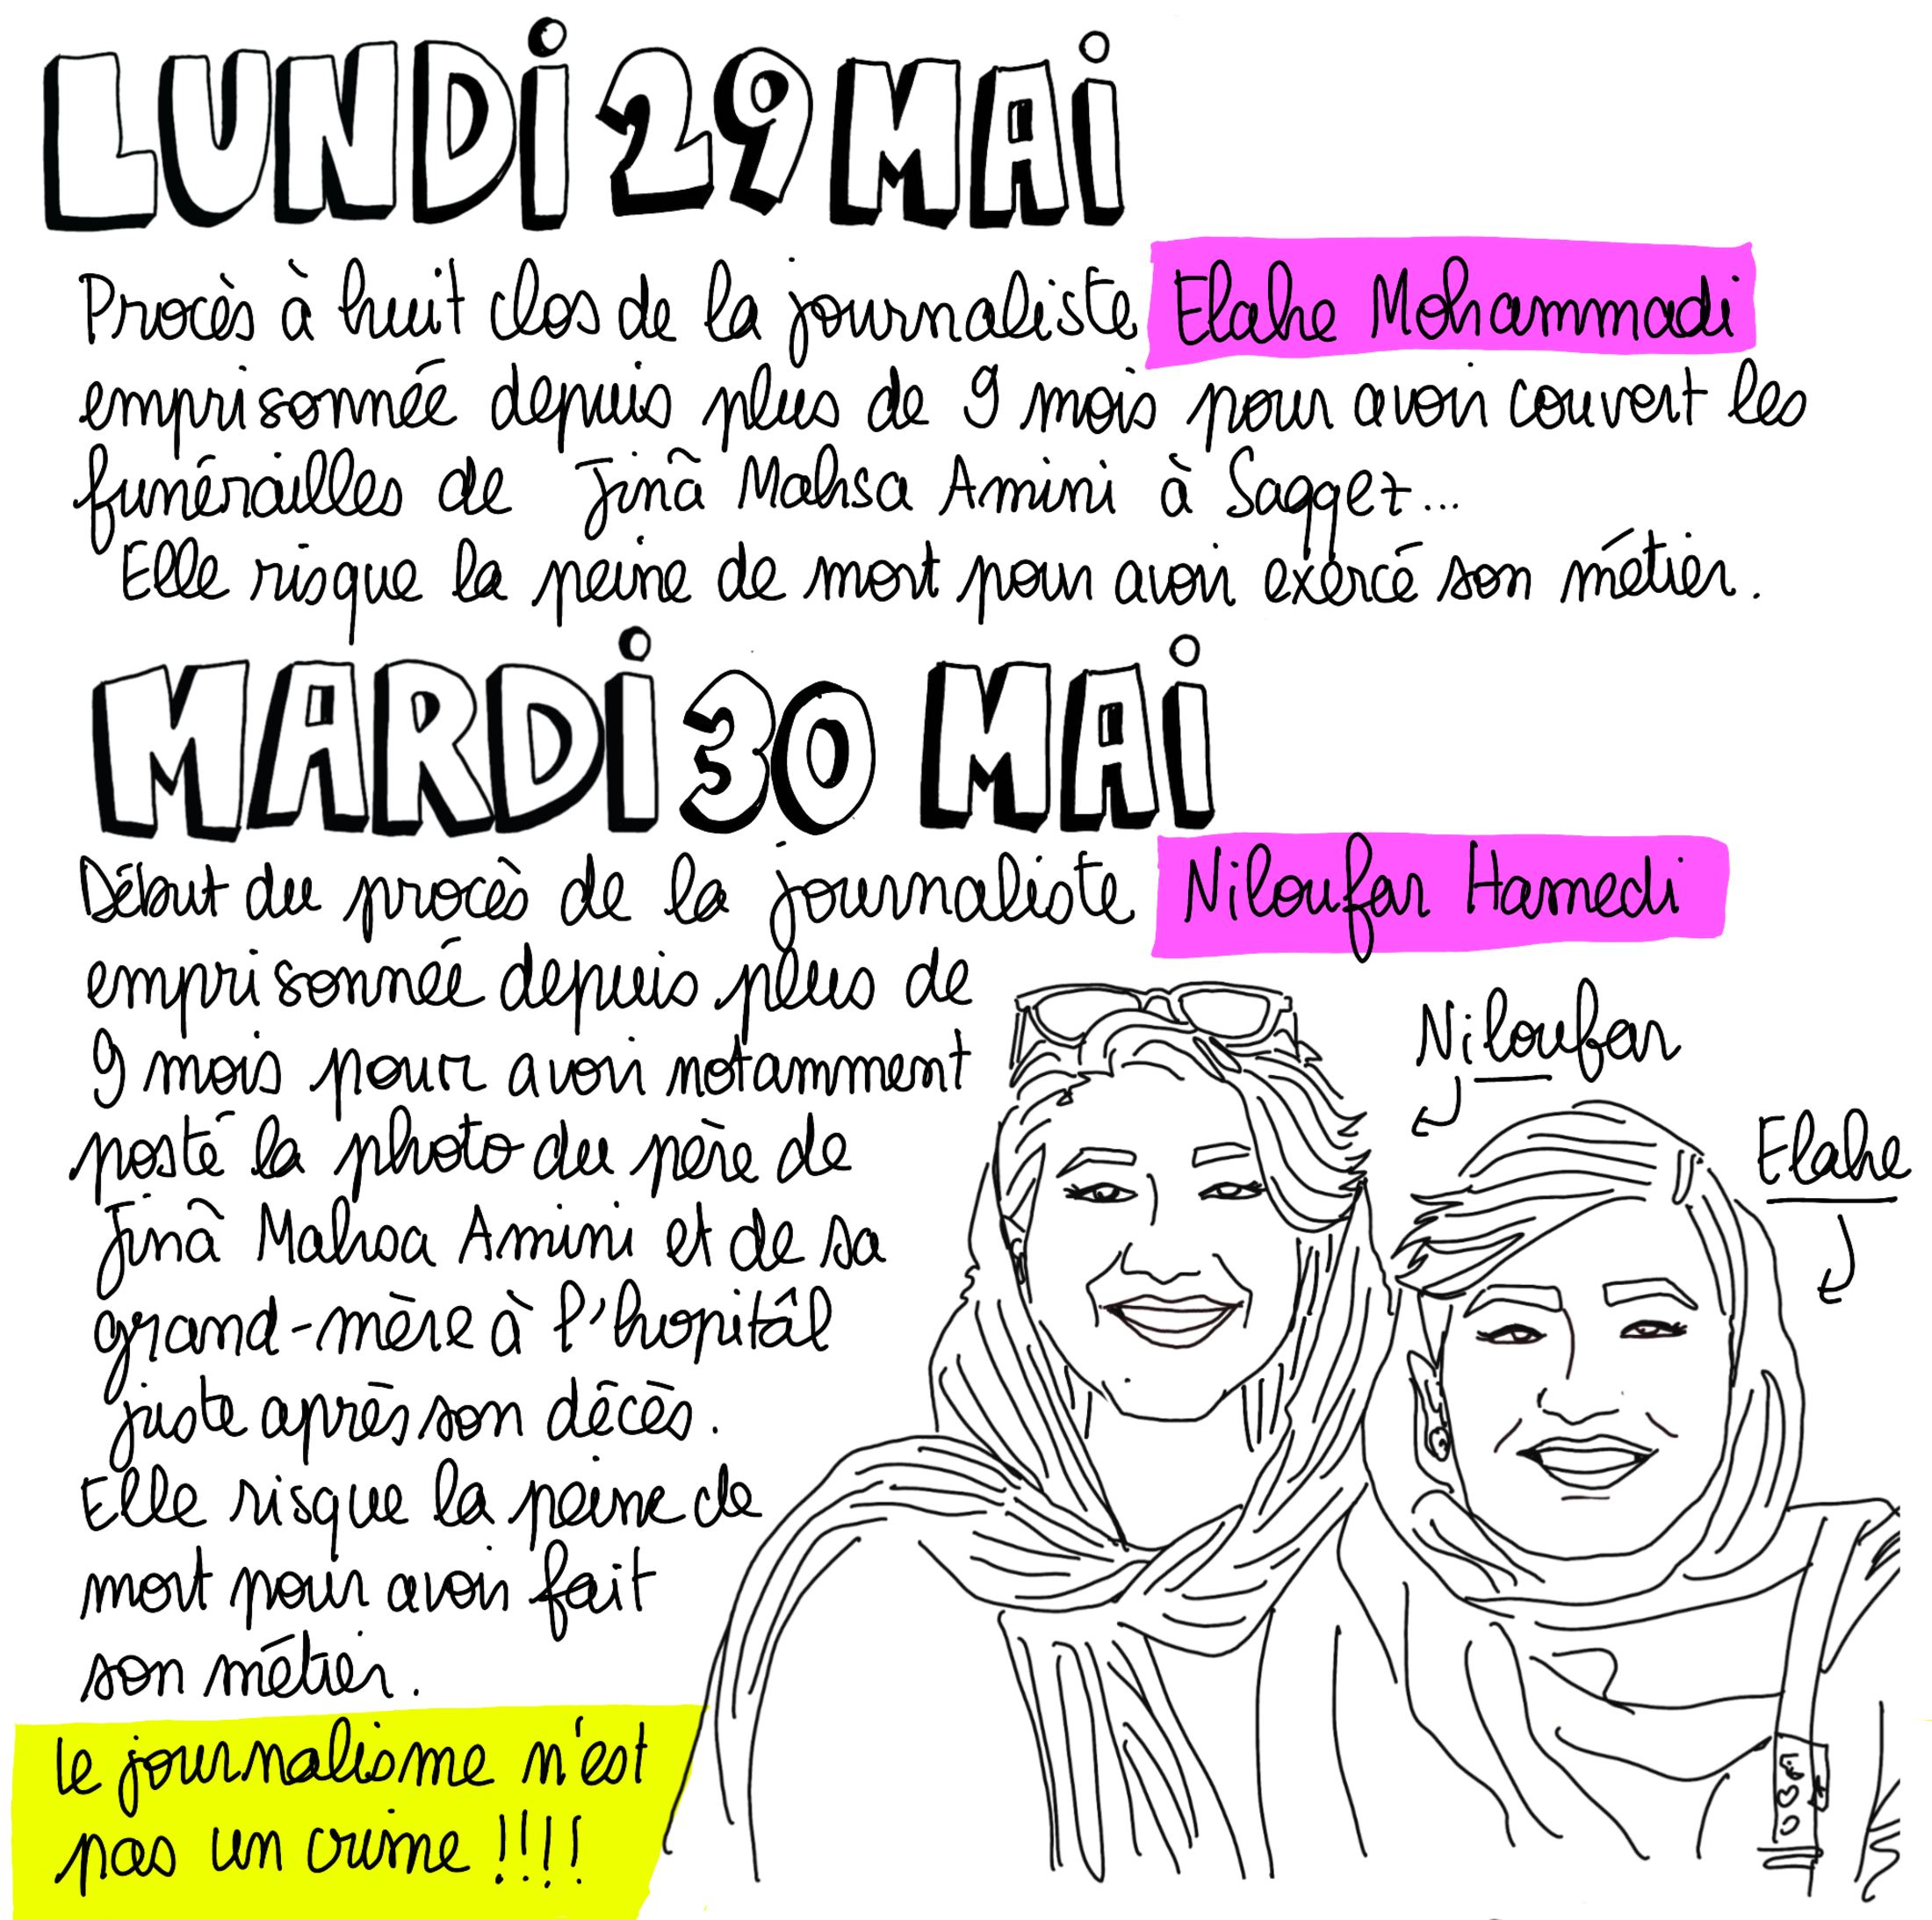 LUNDI 29 MAI
Procès à huit clos de la journaliste Elahe Mohammadi
emprisonnée depuis plus de 9 mois pour avoir couvert les
funérailles de Jinâ Mahsa Amini à Saqqez...
Elle risque la peine de mort pour avoir exercé son métier.
MARDI 30 MAI
Début du procès de la journaliste Niloufar Hamedi
emprisonnée depuis plus de
9 mois pour avoir notamment
posté la photo du père de
Jinâ Mahsa Amini et de sa
grand-mère à l'hopitâl
juste après son décès.
Elle risque la peine de
mort pour avoir fait
son métier.
le journalisme n'est
pas un crime !!!!
Niloufar
Elahe